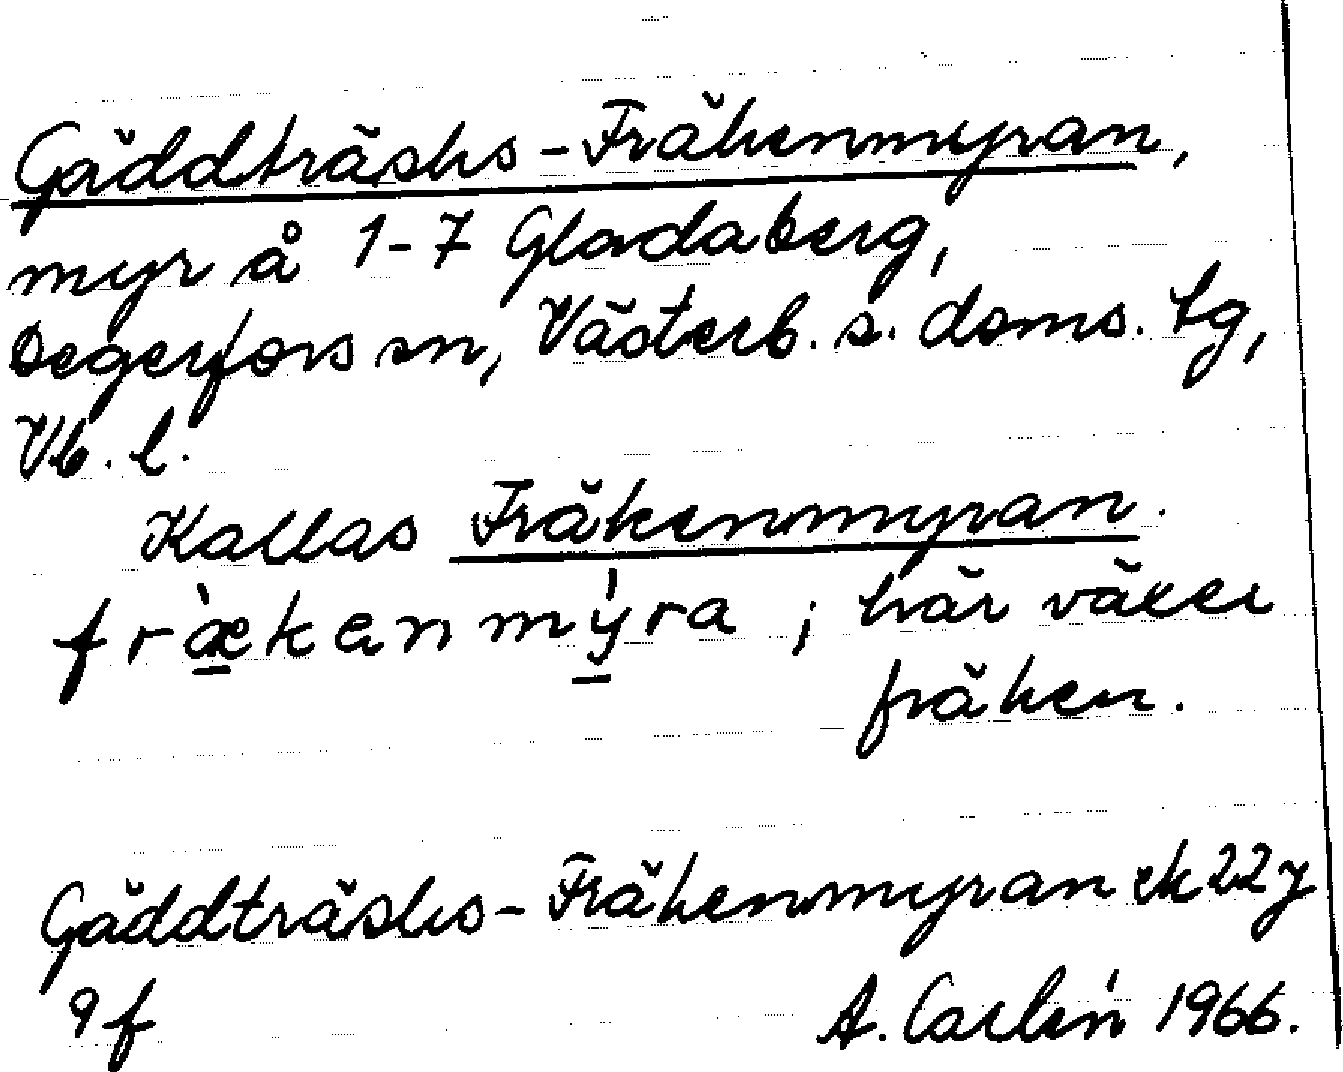 Gäddträsks-Fräkenmyran,
myr å 1-7 Gladaberg,
Degerfors sn, Västerb. s. doms. tg,
Vb. l.
Kallas Fräkenmyran.
frækenmyra ; här växer
fräken.
Gäddträsks-Fräkenmyran ek 22 y
9 f A. Carlén 1966.